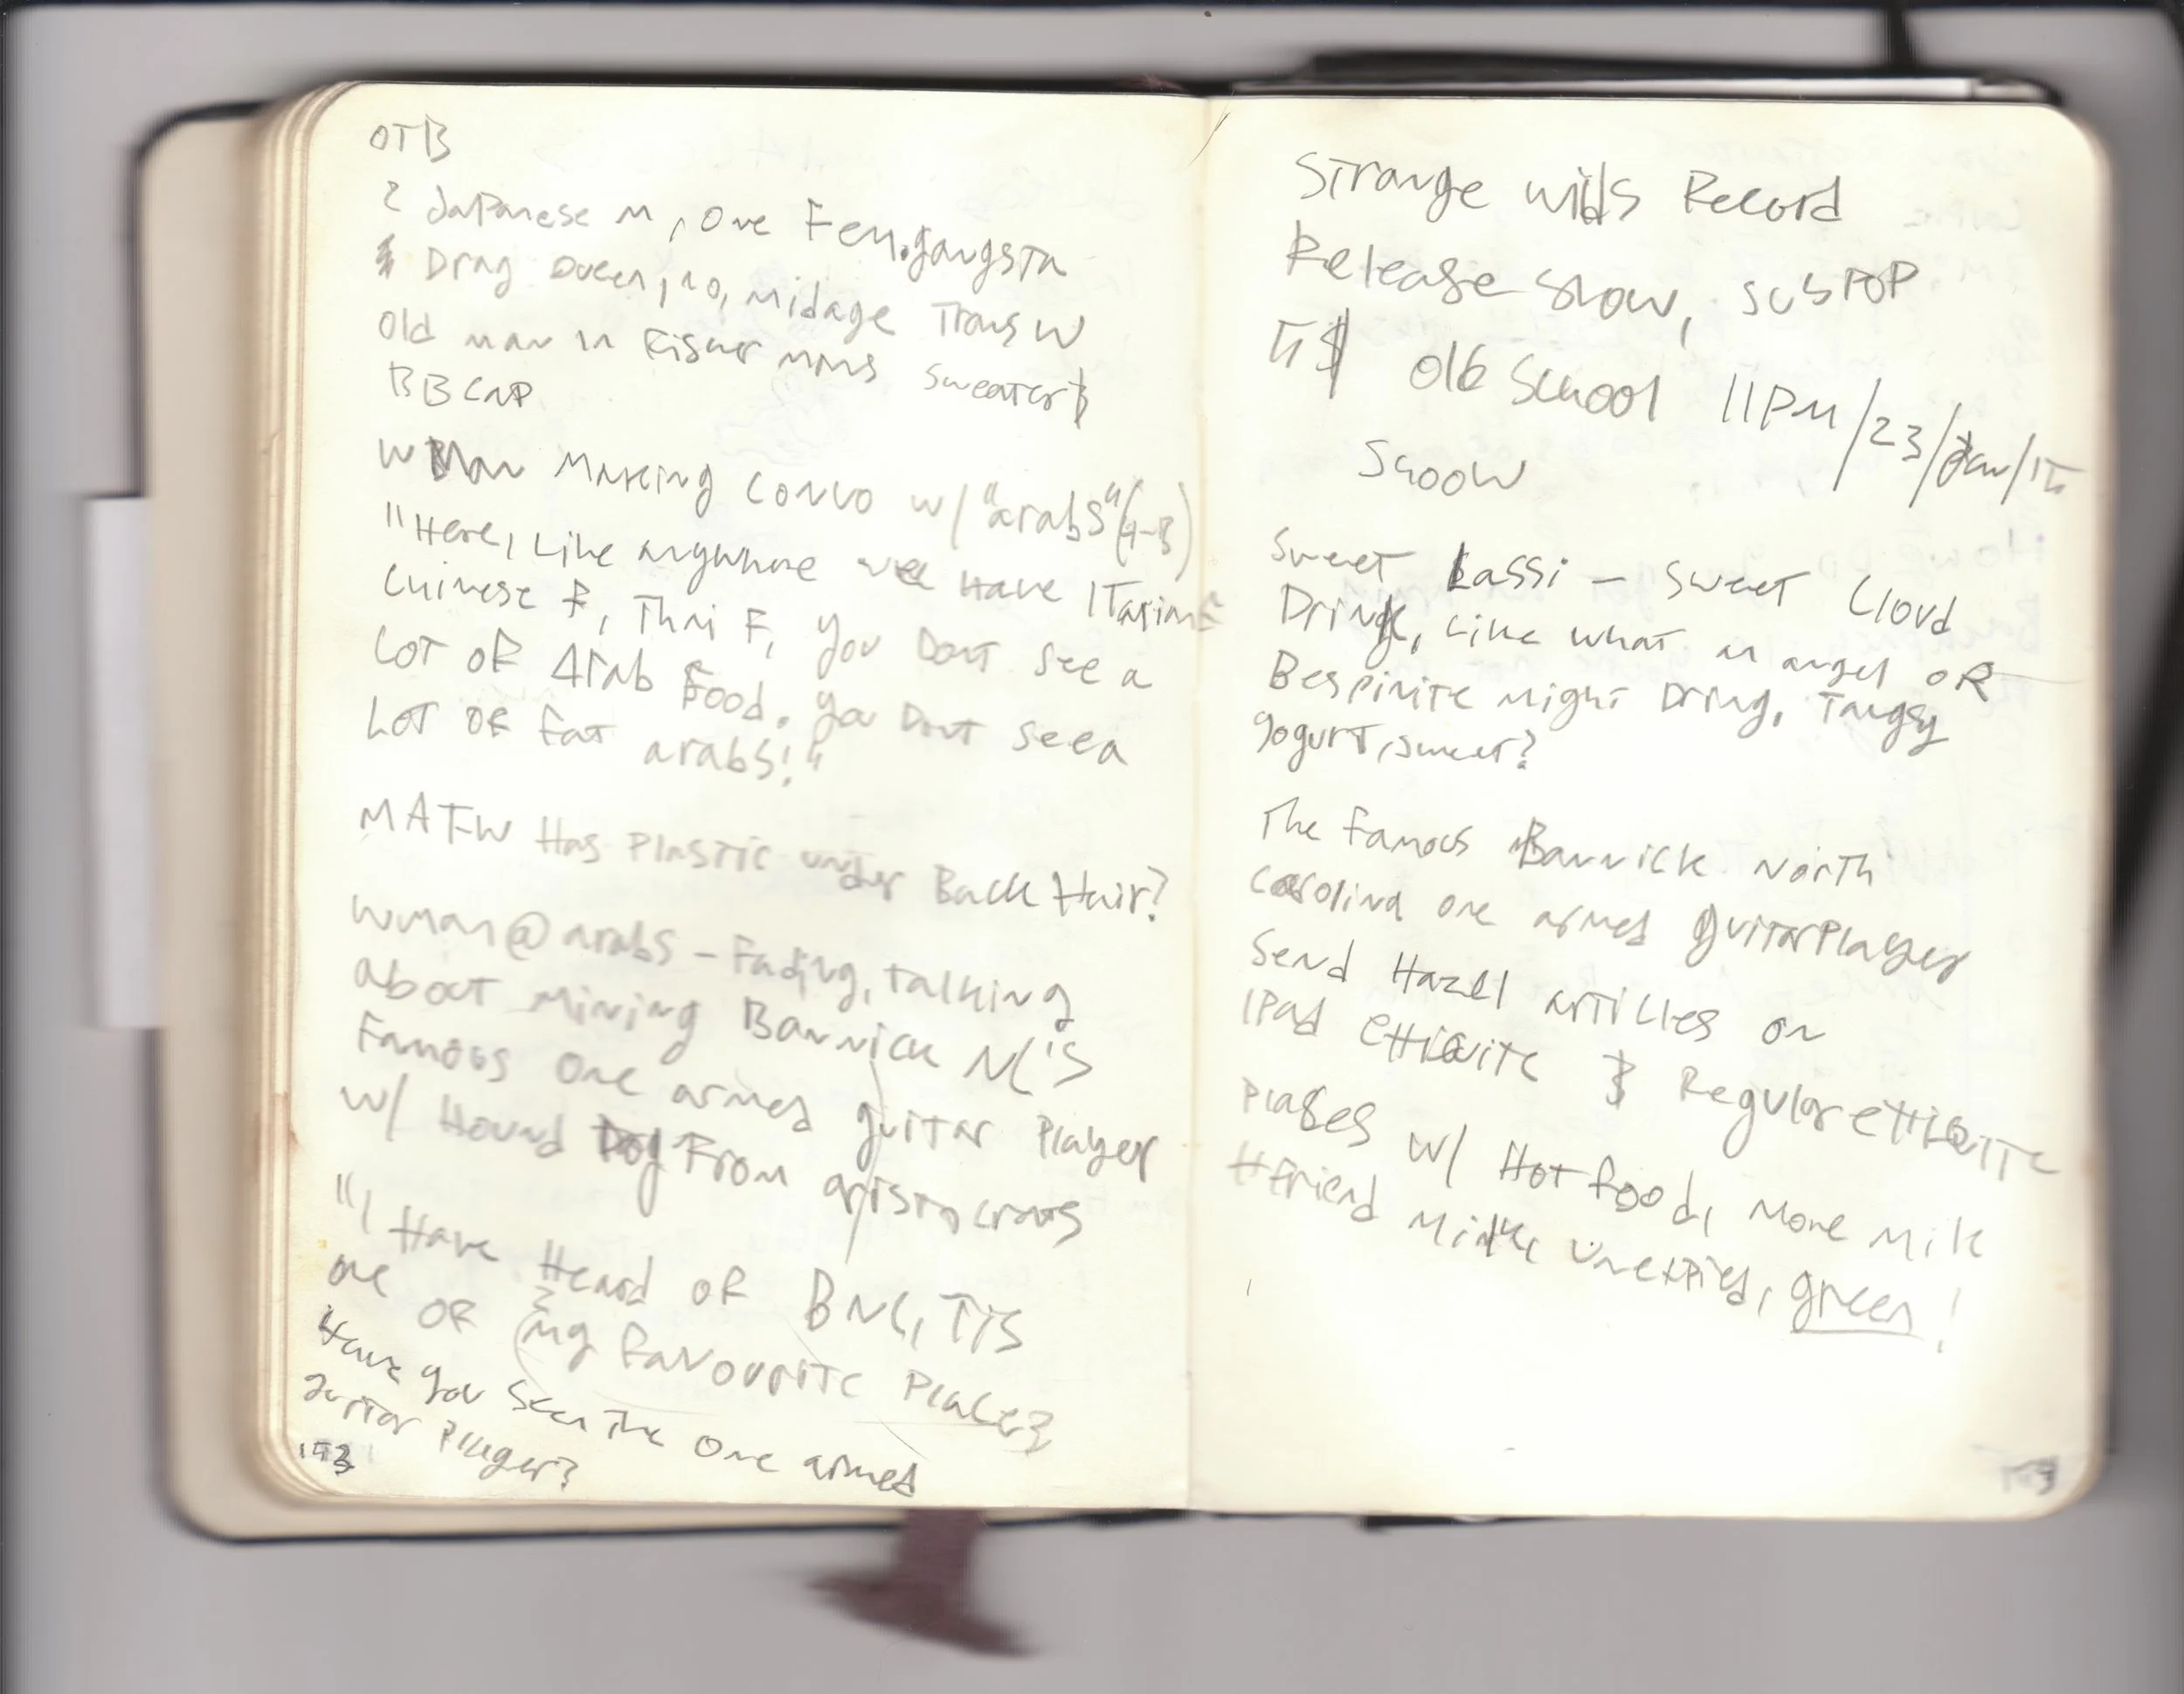 OTB
2 Japanese M, One Fem. gangsta
& Drag Queen, no, midage Trans W
Old man in Fisher mans sweater &
BB CAP
W Man Making convo w/ "arabs" (4-3)
"Here, Like anywhere we have
Chinese F, Thai F, You Dont see a
LOT OF Arab Food. You Dont see a
LOT OF fat arabs!"
MATFW Has Plastic under Back Hair?
WMan @ arabs - Fading, talking
about Mining Bannick NC's
Famous One armed guitar Player
w/ Hound Dog From aristocrats
"I Have Heard of BNC, T'is
one OF my favourite Places
Have you seen The One armed
guitar Player?
153
Strange Wilds Record
Release Show, SUBPOP
5$ Old School 11PM/23/Jan/15
Sweet Lassi – Sweet Cloud
Drink, Like what an angel OR
might Dring, Tangy
yogurt, sweet?
The famous Bannick North
Carolina one armed guitar Player
Send Hazel articles on
IPad ettiquite & Regular ettiquite
Plases w/ Hot food, more milk
+ friend Milk, unexpied, green!